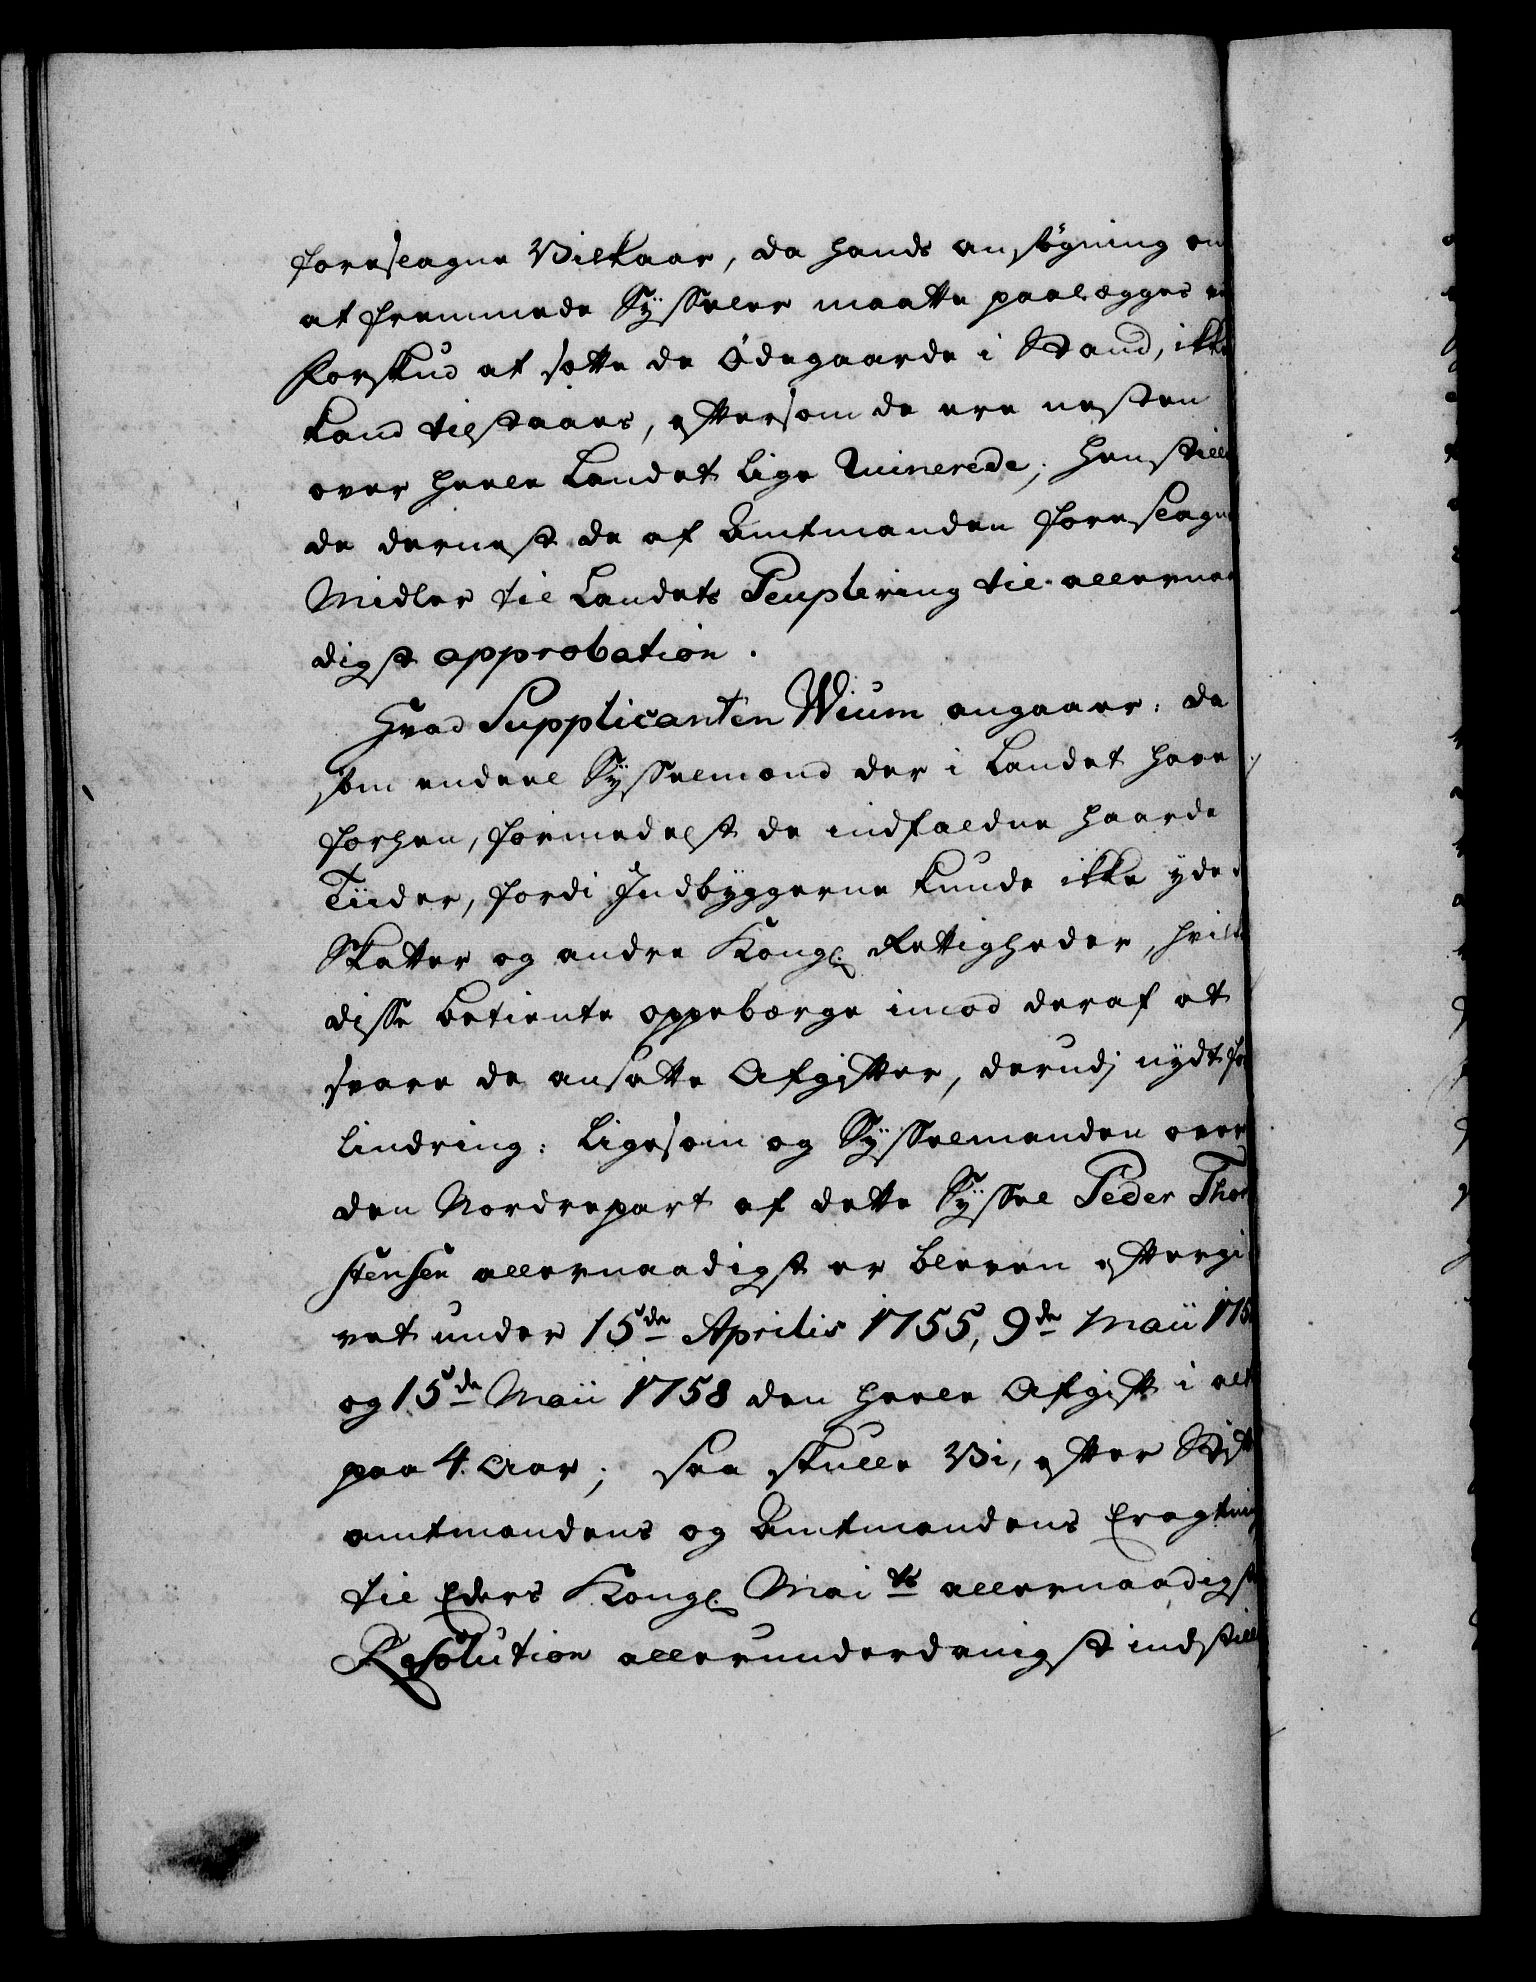 foreslagne Vilkaar, da hands ansøgning om
at fremmede Sÿsseler maatte paalægges en
Forskud at sette de Ødegaarde i Stand, ikke
kand tilstaaes, eftersom de ere nesten
over heele Landet lige Ruinerede; henstille
de dernest de af Amtmanden foreslagne
Midler til Landets Peuplering til allernaa
digst approbation.
Hvad Supplicanten Wium angaaer: da
som endeel Sÿsselmænd der i Landet have
forhen, formedelst de indfaldne haarde
Tiider, fordi Indbyggerne kunde ikke yde d
Skatter og andre Kongl. Rettigheder, hvilke
disse betiente oppebærge imod deraf at
svare de ansatte Afgifter, derudj nydt for
lindring: ligesom og Sÿsselmanden over
den Nordrepart af dette Sÿssel Peder Thor
stensen allernaadigst er bleven eftergi
vet under 15de Aprilis 1755, 9de Maii 175
og 15de Maii 1758 den heele Afgift i alt
paa 4. Aar; saa skulle Vi, efter Stift
amtmandens og Amtmandens Eragtning
til Eders Kongl. Maits allernaadigst
Resolution allerunderdanigst indstille